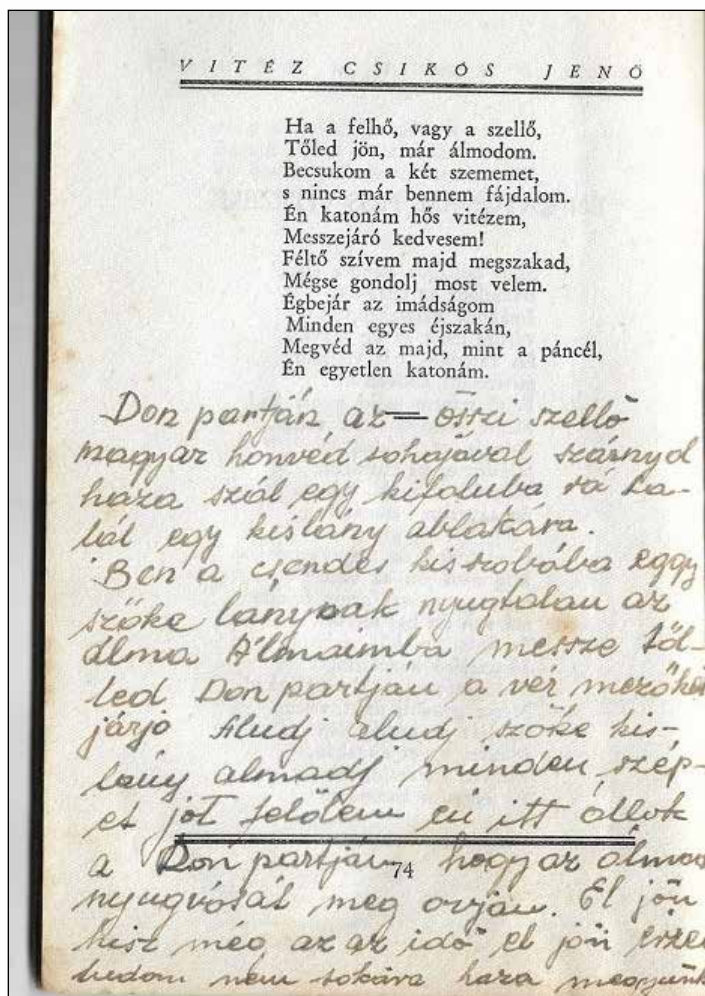 VITÉZ CSIKÓS JENŐ
Ha a felhő, vagy a szellő,
Tőled jön, már álmodom.
Becsukom a két szememet,
s nincs már bennem fájdalom.
Én katonám hős vitézem,
Messzejáró kedvesem!
Féltő szívem majd megszakad,
Mégse gondolj most velem.
Égbejár az imádságom
Minden egyes éjszakán,
Megvéd az majd, mint a páncél,
Én egyetlen katonám.
Don partján az őszi szellő
magyar honvéd sohajával szárnyal
haza szál egy kifaluba rá ta-
lál egy kislány ablakára.
Ben a csendes kisszobába eggy
szőke lánynak nyugtalan az
álma Álmaimba messze től-
led Don partján a vér mezőket
járjó Aludj aludj szőke kis-
lány almadj minden szép-
et jót felőlem én itt állok
a Don partján hogy az álmod
74
nyugvósát meg ovjan. El jön
hisz még az az idő el jön
tudom nem sokára haza megyünk